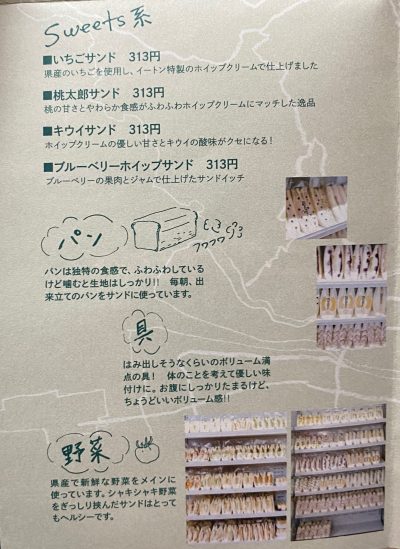 Sweets系
■いちごサンド 313円
県産のいちごを使用し、イートン特製のホイップクリームで仕上げました
■桃太郎サンド 313円
桃の甘さとやわらか食感がふわふわホイップクリームにマッチした逸品
■キウイサンド 313円
ホイップクリームの優しい甘さとキウイの酸味がクセになる!
■ブルーベリーホイップサンド 313円
ブルーベリーの果肉とジャムで仕上げたサンドイッチ
パン
パンは独特の食感で、ふわふわしている
けど噛むと生地はしっかり!! 毎朝、出
来立てのパンをサンドに使っています。
具
はみ出しそうなくらいのボリューム満
点の具! 体のことを考えて優しい味
付けに。お腹にしっかりたまるけど、
ちょうどいいボリューム感!!
野菜
県産で新鮮な野菜をメインに
使っています。シャキシャキ野菜
をぎっしり挟んだサンドはとって
もヘルシーです。